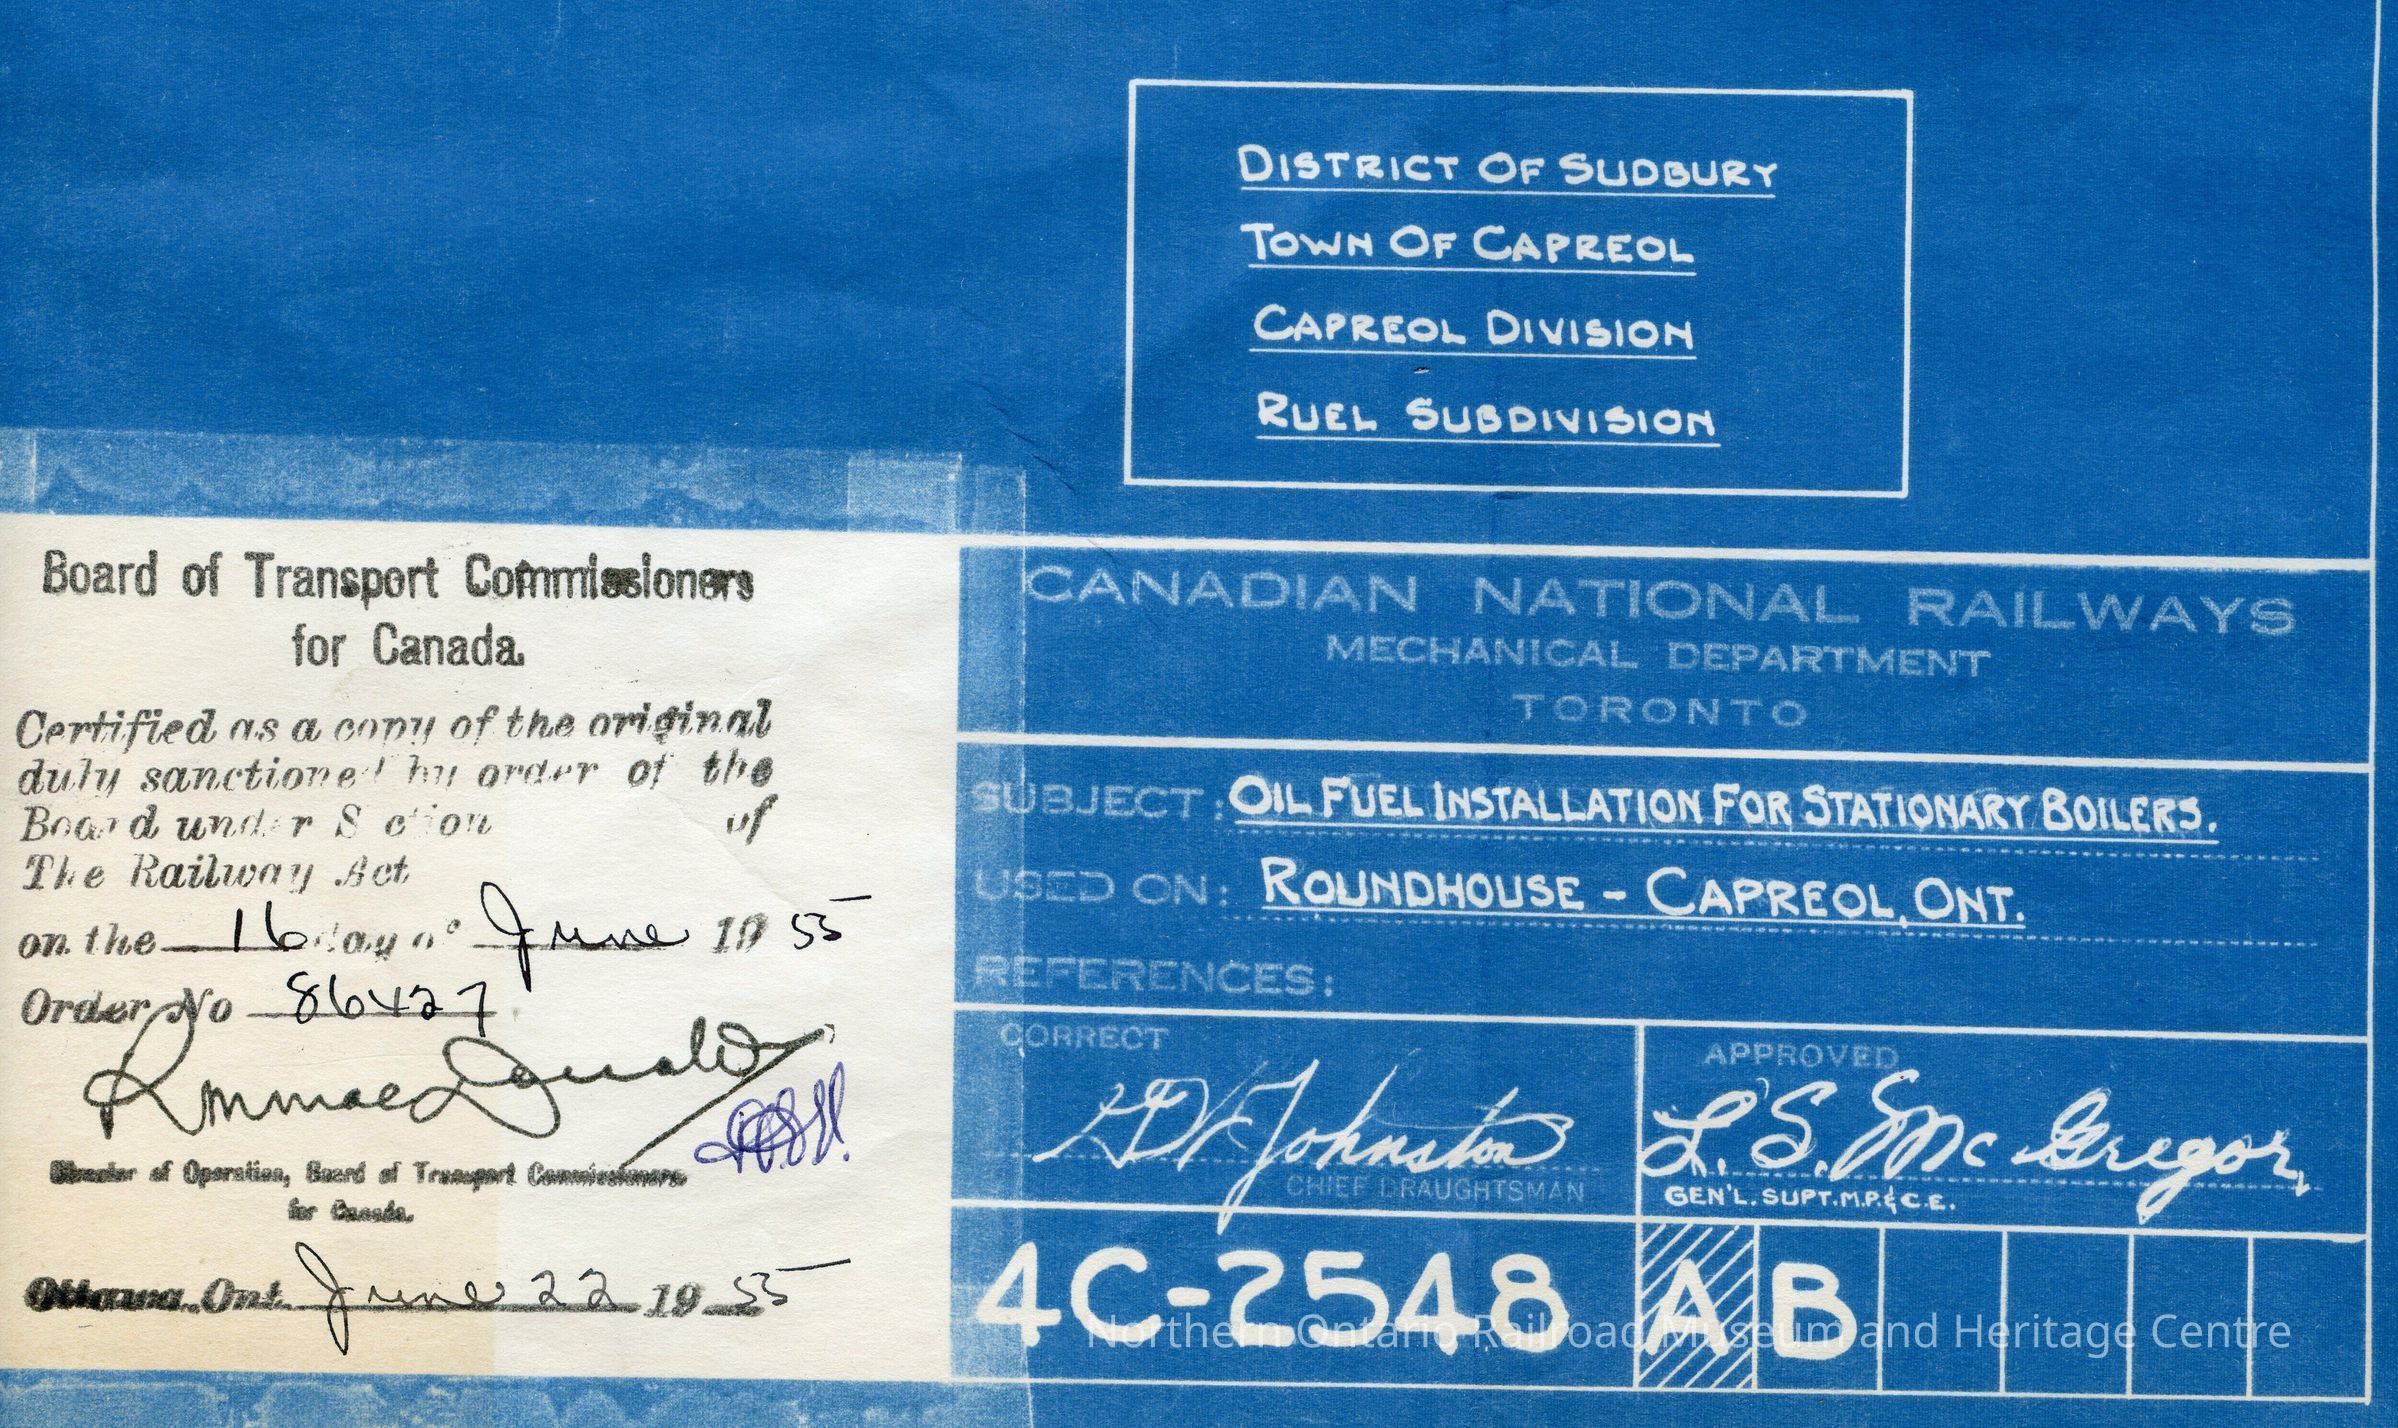 DISTRICT OF SUDBURY
TOWN OF CAPREOL
CAPREOL DIVISION
RUEL SUBDIVISION
Board of Transport Commissioners
for Canada.
Certified as a copy of the original
duly sanctioned by order of the
Board under Section of
The Railway Act
on the 16 day of June 19 55
Order No 86427
Director of Operation, Board of Transport Commissioners
for Canada.
Ottawa, Ont. June 22 19 55
CANADIAN NATIONAL RAILWAYS
MECHANICAL DEPARTMENT
TORONTO
SUBJECT: OIL FUEL INSTALLATION FOR STATIONARY BOILERS.
USED ON: ROUNDHOUSE - CAPREOL, ONT.
REFERENCES:
CORRECT
Johnston
CHIEF DRAUGHTSMAN
APPROVED
L. S. McGregor,
GEN'L. SUPT. M.P. & C.E.
4C-2548 A B
Northern Ontario Railroad Museum and Heritage Centre